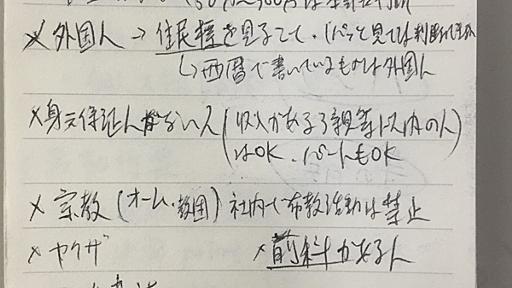 (50万〜300万は
× 外国人 → 住民票を見るこて、(パッと見では判断
↳ 西暦で書いているものは外国人
× 身元保証人がない人 (収入がある3親等以内の人)
はOK、パートもOK
× 宗教 (オーム、教団) 社内で布教活動は禁止
× ヤクザ × 前科がある人